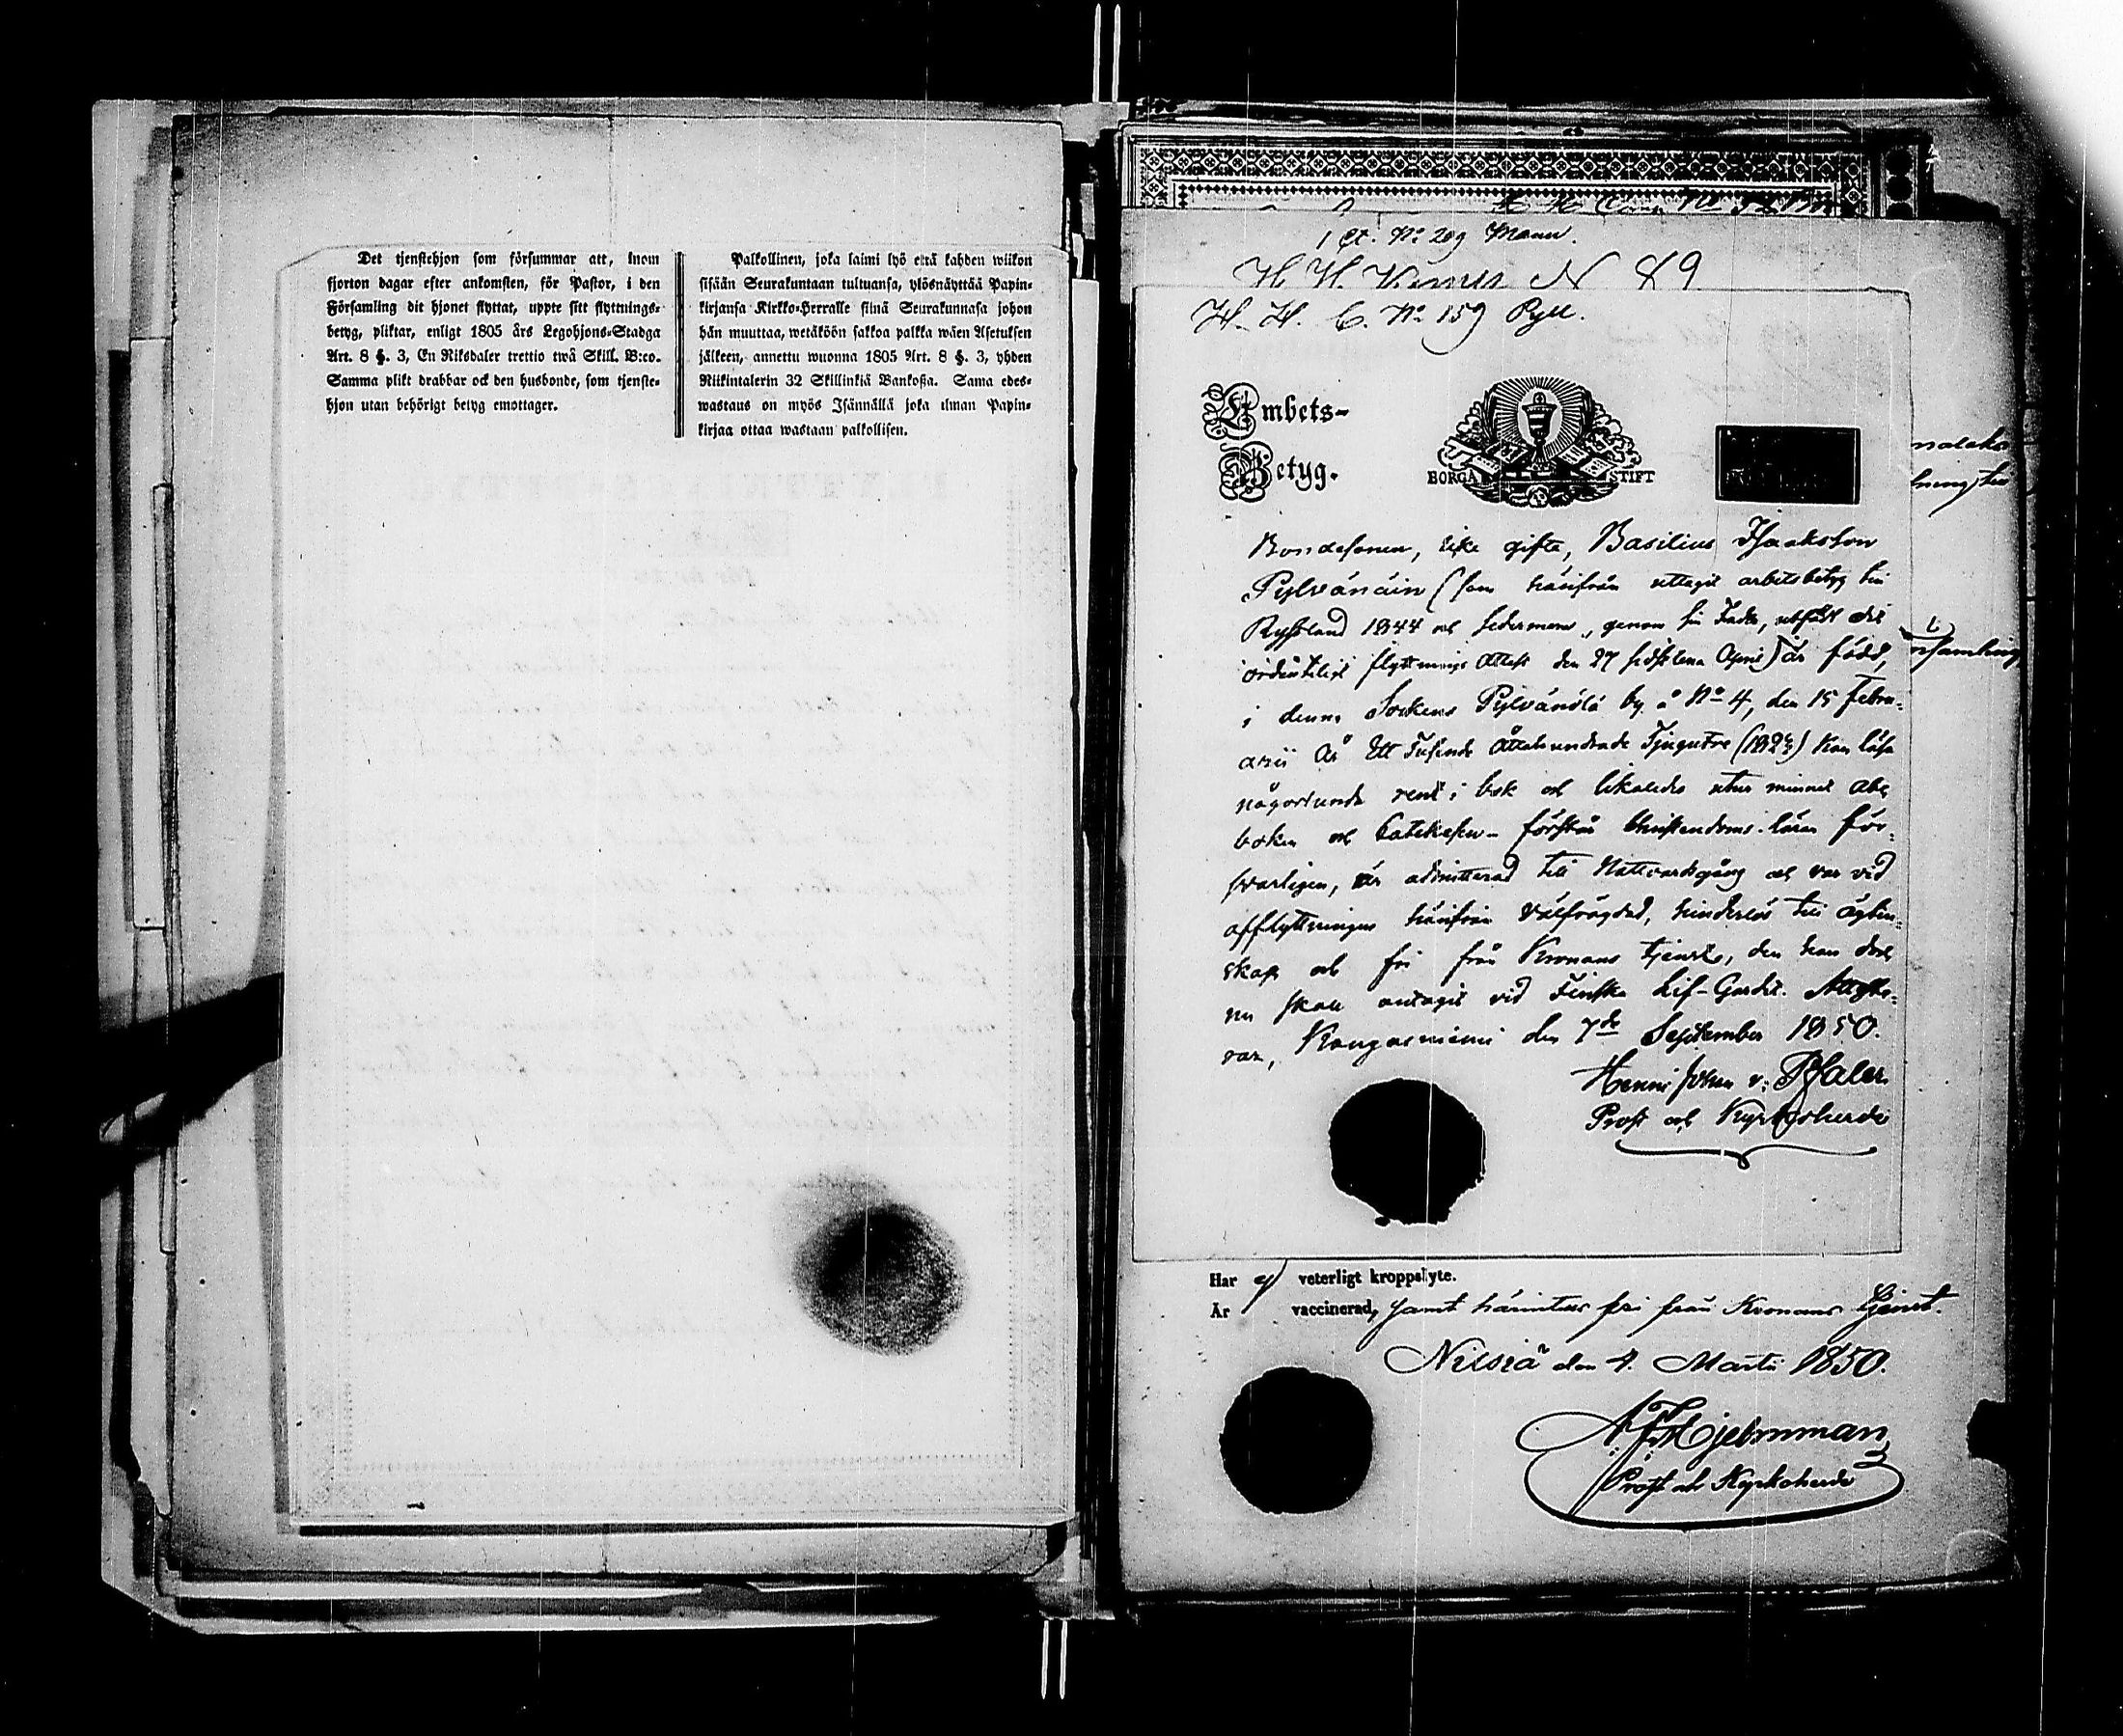 Det tjenstehjon som försummar att, inom
fjorton dagar efter ankomsten, för Pastor, i den
Församling dit hjonet flyttat, uppte sitt flyttnings-
betyg, pliktar, enligt 1805 års Legohjons-Stadga
Art. 8 §. 3, En Riksdaler trettio två Skill. B:co.
Samma plikt drabbar ock den husbonde, som tjenste-
hjon utan behörigt betyg emottager.
Palkollinen, joka laimi lyö että kahden wiikon
sisään Seurakuntaan tultuansa, ylösnäyttää Papin-
kirjansa Kirkko-Herralle siinä Seurakunnasa johon
hän muuttaa, wetäköön sakkoa palkka wäen Asetuksen
jälkeen, annettu wuonna 1805 Art. 8 §. 3, yhden
Riikintalerin 32 Skillinkiä Bankoßa. Sama edes-
wastaus on myös Isännällä joka ilman Papin-
kirjaa ottaa wastaan palkollisen.
1 Ct. No 209 Mann.
H. H. N 89
H. H. C. No 159 Pyll.
Embets-
Betyg.
BORGÅ STIFT
Bondesonen, icke gifte, Basilius Isaaksson
Pylvänäin (som härifrån uttagit arbetsbetyg till
Ryssland 1844 och sedermera, genom sin Fader, utfått det
ordentligt flyttnings Attest den 27 sidstlena April) är född,
i denna Sockens Pylvänälä by å No 4, den 15 Febru-
arii År Ett Tusende Åttahundrade Tjugutre (1823) kan läsa
någorlunda rent i bok och likaledes utur minnet Abc
boken och Catekesen - förstår Christendoms-läran för-
svarligen, är admitterad till Nattvardsgång och var vid
afflyttningen härifrån välfrägdad, hinderlös till ägten-
skap och fri från Kronans tjenst, den han dock
nu skall antagit vid Finska Lif-Gardet. Atteste-
rar, Kangasniemi den 7de September 1850.
Henric Johan v: Pfaler
Prost och Kyrkoherde
Har ej veterligt kroppslyte.
Är vaccinerad, samt härintills fri från Kronans tjenst.
Nilsiä den 4. Martii 1850.
A F Hjelmman
Prost och Kyrkoherde